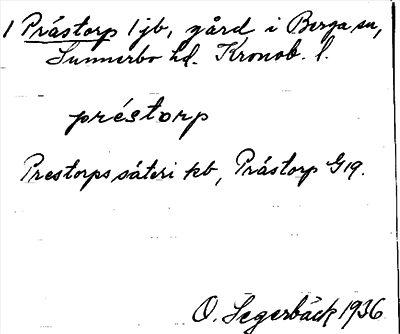 1 Prästorp 1 jb, gård i Berga sn,
Sunnerbo hd. Kronob. l.
préstorp
Prestorps säteri kb, Prästorp G 19.
O. Segerbäck 1936